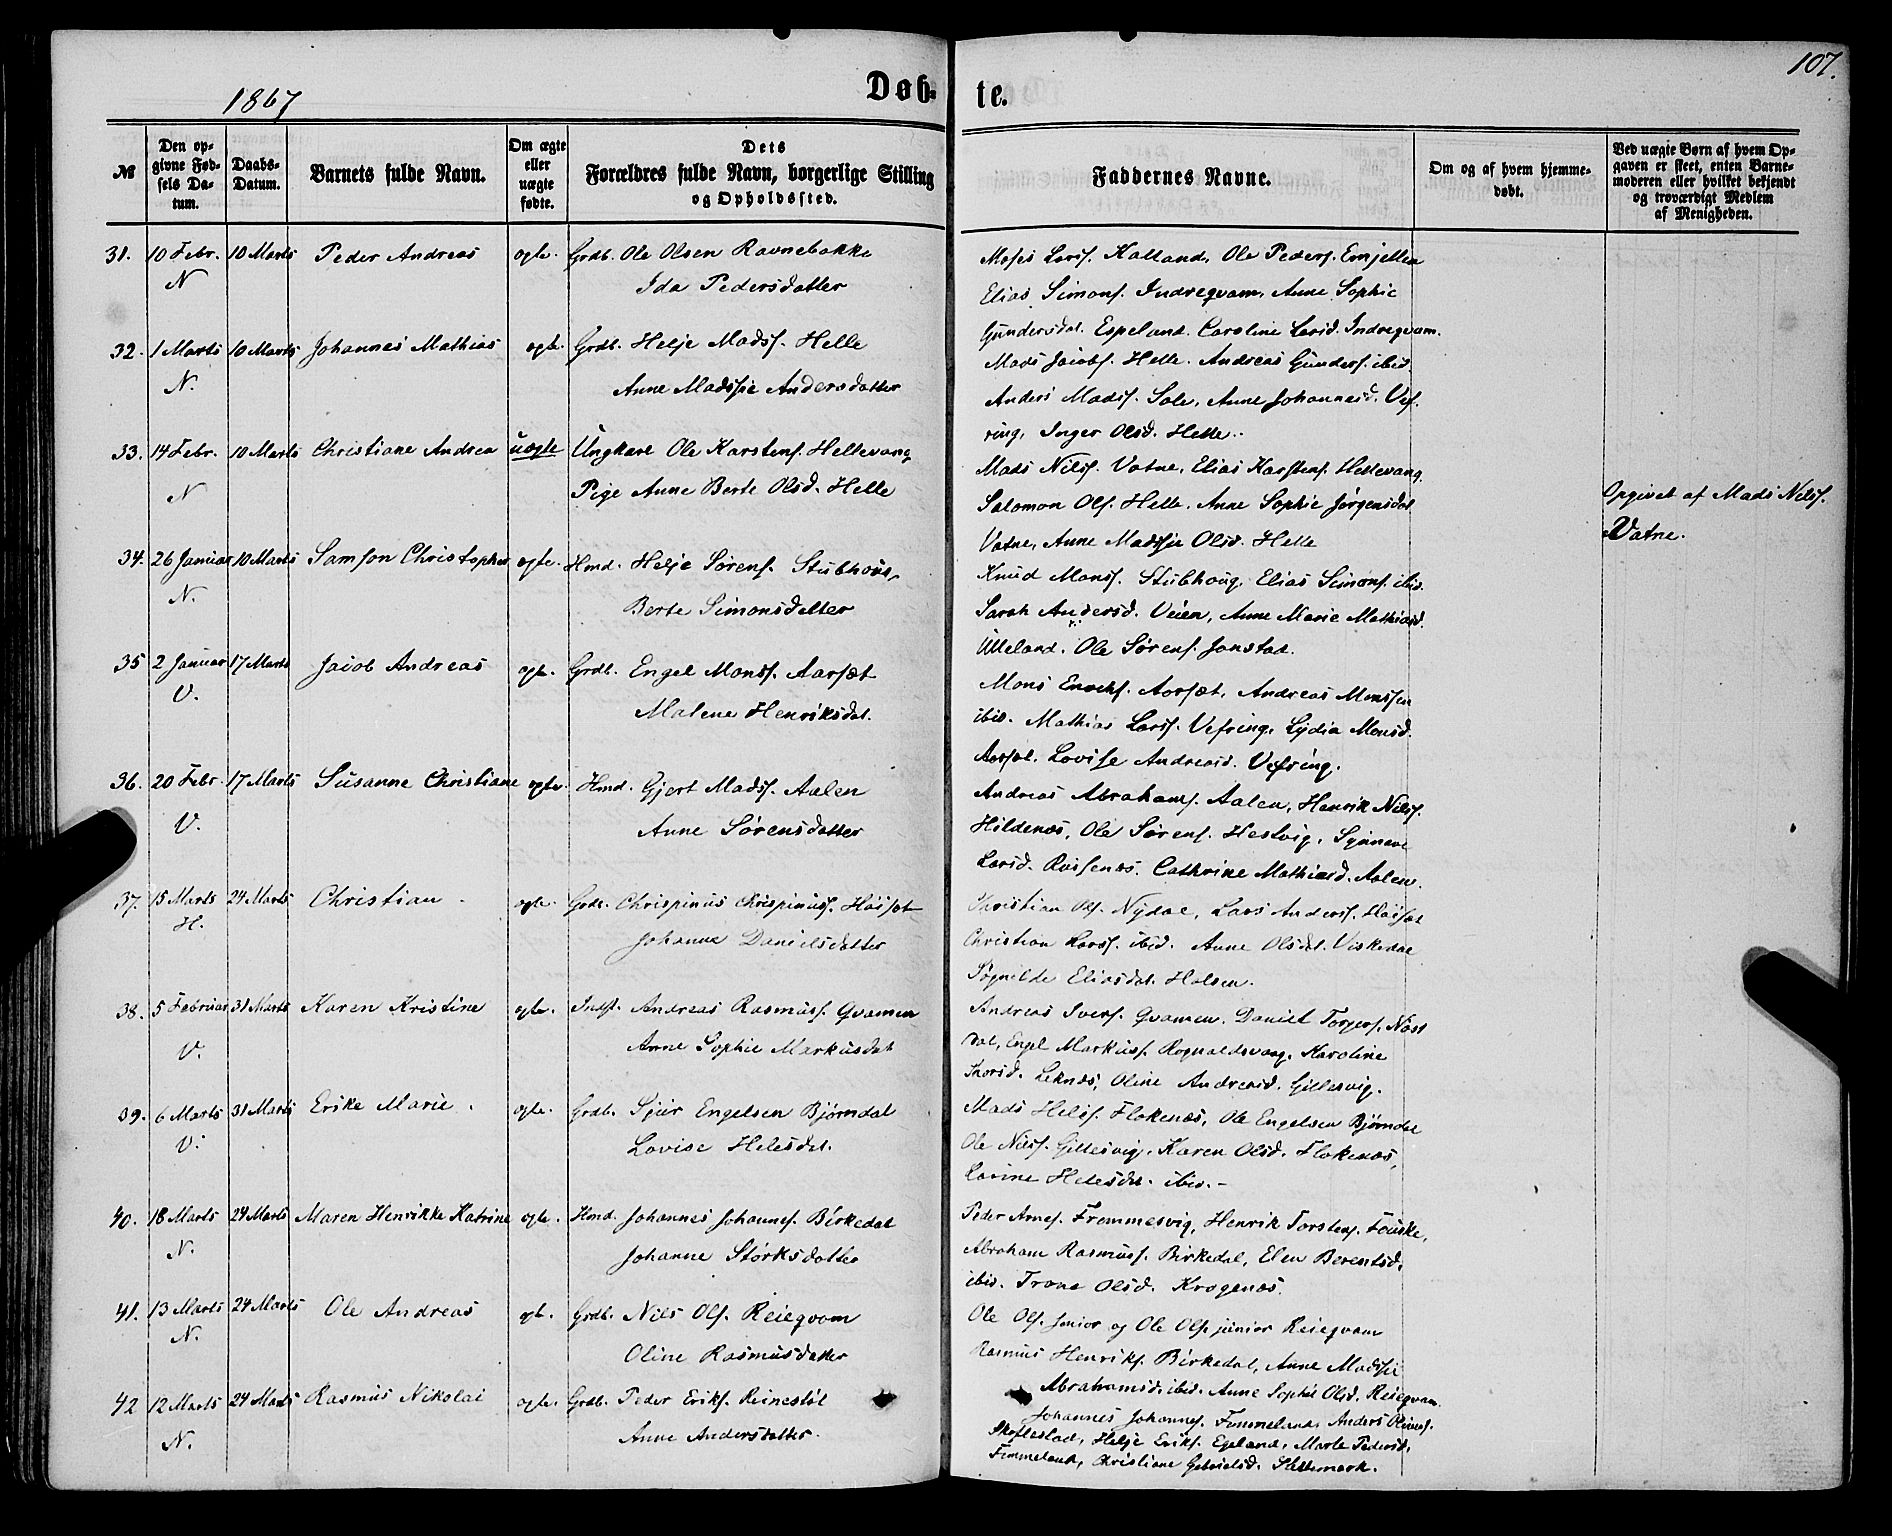 107.
1867
Døb- te.
№
Den opgivne Fødsels Datum.
Daabs-Datum.
Barnets fulde Navn.
Om ægte eller uægte fødte.
Dets Forældres fulde Navn, borgerlige Stilling og Opholdssted.
Faddernes Navne.
Om og af hvem hjemmedøbt.
Ved uægte Børn af hvem Opgaven er skeet, enten Barnemoderen eller hvilket bekjendt og troværdigt Medlem af Menigheden.
31. 10 Febr. 10 Marts Peder Andreas ægte. Grdb. Ole Olsen Ravnebakke
N Ida Pedersdatter
Moses Larss. Kalland, Ole Peders.
Elias Simons. Indreqvam, Anne Sophie
Gundersdat. Espeland. Caroline Larsd. Indreqvam.
32. 1 Marts 10 Marts Johannes Mathias ægte. Grdb. Helje Madss. Helle
N. Anne Madssie Andersdatter
Mads Jacobs. Helle. Andreas Gunders. ibid.
Anders Madss. Sole, Anne Johannesd. Vef-
ring, Inger Olsd. Helle.
33. 14 Febr. 10 Marts Christiane Andrea uægte Ungkare Ole Karstens. Hellevang
N Pige Anne Berte Olsd. Helle
Mads Nilss. Vatne, Elias Karstens. Hellevang.
Salomon Ols. Helle. Anne Sophie Jørgensdat
Vatne, Anne Madssie Olsd. Helle
Opgivet af Mads Nilss.
Vatne.
34. 26 Januar 10 Marts Samson Christopher ægte. Hmd. Helje Sørens. Stubhoug,
N. Berte Simonsdatter
Knud Monss. Stubhoug, Elias Simons. ibid.
Sarah Andersd. Veien, Anne Marie Mathiasd.
Ulleland. Ole Sørens. Jonstad.
35 2 Januar 17 Marts Jacob Andreas ægte. Grdb. Engel Monss. Aarsæt
V. Malene Henriksdat.
Mons Enochs. Aarsæt, Andreas Monssen
ibid. Mathias Larss. Vefring, Lydia Monsd.
Aarsæt. Lovise Andreasd. Vefring.
36. 20 Febr. 17 Marts Susanne Christiane ægte. Hmd. Gjert Madss. Aalen
V. Anne Sørensdatter
Andreas Abrahams. Aalen, Henrik Nilss.
Hildenæs, Ole Sørens. Hestvig, Synneve
Larsd. Cathrine Mathiasd. Aalen.
37. 15 Marts 24 Marts Christian ægte. Grdb. Chrispinus Chrispinuss. Høisæt
H. Johanne Danielsdatter
Christian Ols. Nydal, Lars Anderss. Høisæt
Christian Larss. ibid. Anne Olsdat. Viskedal
Eliasdat. Halsen.
38. 5 Februar 31 Marts Karen Kristine ægte. Indst. Andreas Rasmuss. Qvamen
V. Anne Sophie Markusdat
Andreas Ivers. Qvamen. Daniel Torgers. Nøst-
dal, Engel Markuss. Rognaldsvaag. Karoline
Leknæs, Oline Andreasd. Gillesvig.
39. 6 Marts 31 Marts Erike Marie. ægte. Grdb. Sjur Engelsen Bjørndal
V. Lovise Helesdat.
Mads Helss. Flokenæs, Ole Engelsen Bjørndal
Ole Nilss. Gillesvig. Karen Olsd. Flokenæs,
Lovine Helesdat. ibid. -
40. 18 Marts 24 Marts Maren Henrikke Katrine ægte. Hmd. Johannes Johannes. Birkedal
N. Johanne Størksdatter
Peder Arnes. Frommesvig, Henrik Torstens. Fouske,
Abraham Rasmuss. Birkedal, Elen Berentsd.
ibid. Trone Olsd. Krogenæs.
41. 13 Marts 24 Marts Ole Andreas ægte. Grdb. Nils Ols. Reiegvam
N. Oline Rasmusdatter
Ole Ols. senior og Ole Ols. junior Reiegvam
Rasmus Henriks. Birkedal, Anne Madssie
Abrahamsd. ibid. Anne Sophie Olsd. Reiegvam.
42 12 Marts 24 Marts Rasmus Nikolai ægte. Grdb. Peder Eriks. Reinestøl
N. Anne Andersdatter.
Johannes Johannes. Fimmeland, Anders Olivers.
Skoflestad, Helje Eriks. Egeland, Marte Pedersd.
Fimmeland, Christiane Gabrielsd. Slettemark.